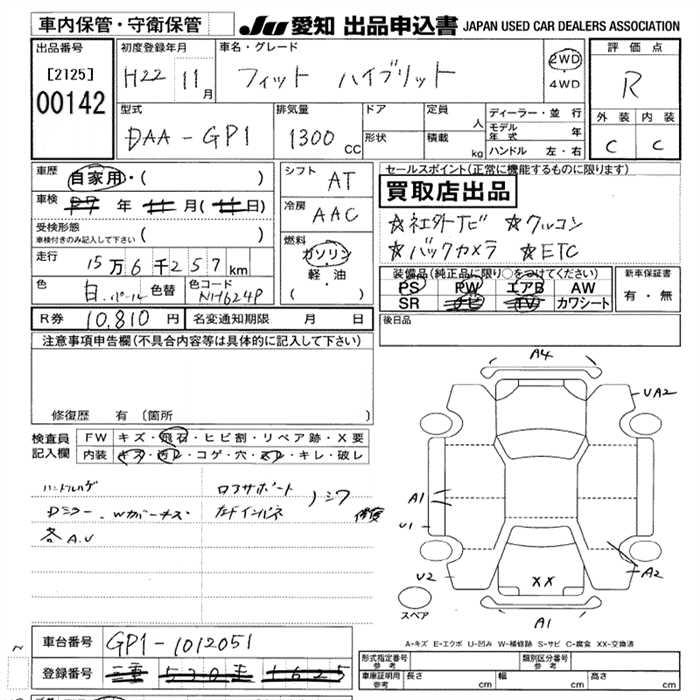 車内保管・守衛保管 JU 愛知 出品申込書 JAPAN USED CAR DEALERS ASSOCIATION
出品番号 初度登録年月 車名・グレード 評価点
[2125] H22 11月 フィット ハイブリット 2WD・4WD R
00142
型式 排気量 ドア 定員 ディーラー・並行 外装 内装
DAA-GP1 1300cc 形状 人 積載 kg モデル年式 年 C C
ハンドル 左・右
車歴 自家用・( ) シフト AT セールスポイント(正常に機能するものに限ります)
買取店出品
車検 年 月( 日) 冷房 AAC ☆社外ナビ ☆クルコン
受検形態 車検付きのみ記入して下さい ( ) ☆バックカメラ ☆ETC
走行 15万6千257km 燃料 ガソリン・軽油 ・( )
装備品(純正品に限り○をつけてください) 新車保証書
色 白パール 色替 色コード NH624P PS PW エアB AW 有・無
SR ナビ TV カワシート
R券 10,810円 名変通知期限 月 日 後日品
注意事項申告欄(不具合内容等は具体的に記入して下さい)
修復歴 有(箇所 )
検査員記入欄 FW キズ・飛石・ヒビ割・リペア跡・X要
内装 キズ・汚レ・コゲ・穴・スレ・キレ・破レ
ハンドルハゲ ロアサポート
Dミラー、Wカバーキズ 左Fインパネ シワ 修復
各A.U
A4
UA2
A1
U1
U2
XX
A2
A1
スペア
A-キズ E-エクボ U-凹み W-補修跡 S-サビ C-腐食 XX-交換済
車台番号 GP1-1012051
登録番号
形式指定番号 参考 類別区分番号 参考
車庫証明用 参考 長さ cm 幅 cm 高さ cm